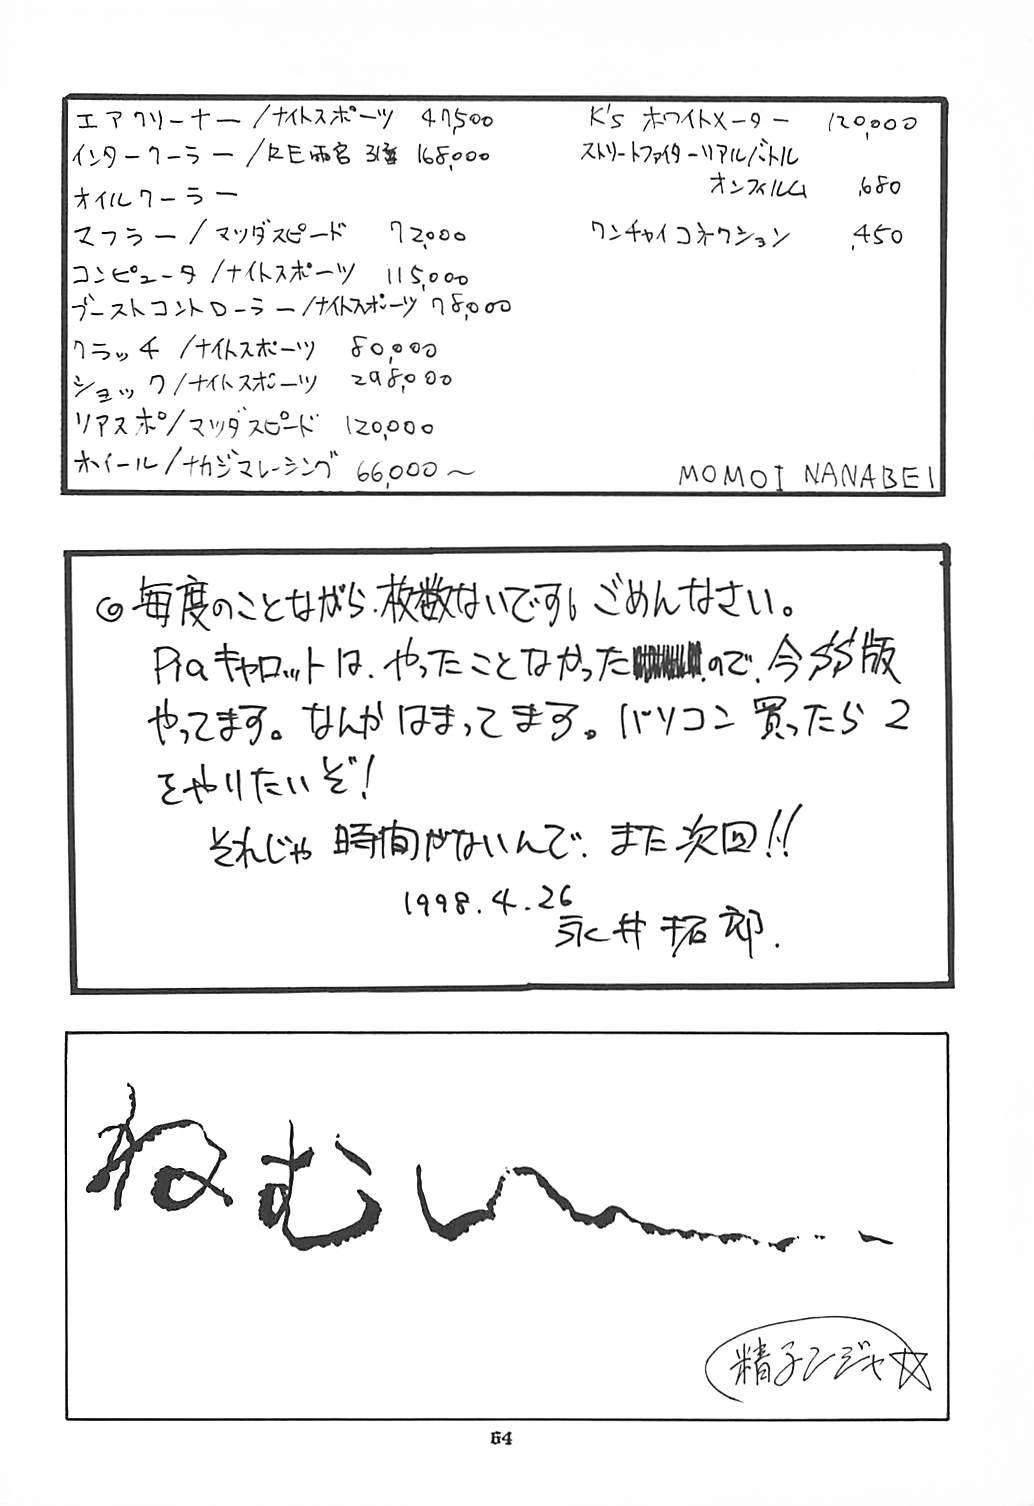 エアクリーナー/ナイトスポーツ 47,500
インタークーラー/RE雨宮 3層 168,000
オイルクーラー
マフラー/マツダスピード 72,000
コンピュータ/ナイトスポーツ 115,000
ブーストコントローラー/ナイトスポーツ 78,000
クラッチ/ナイトスポーツ 80,000
ショック/ナイトスポーツ 298,000
リアスポ/マツダスピード 120,000
ホイール/ナカジマレーシング 66,000〜
K's ホワイトメーター 120,000
ストリートファイターリアルバトル
オンフィルム ,680
ワンチャイコネクション ,450
MOMOI NANABEI
◎毎度のことながら、枚数ないですし ごめんなさい。
Piaキャロットは、やったことなかったので、今SS版
やってます。なんかはまってます。パソコン買ったら2
をやりたいぞ!
それじゃ時間がないんで、また次回!!
1998.4.26
永井拓郎.
ねむい
精子ンジャ☆
64